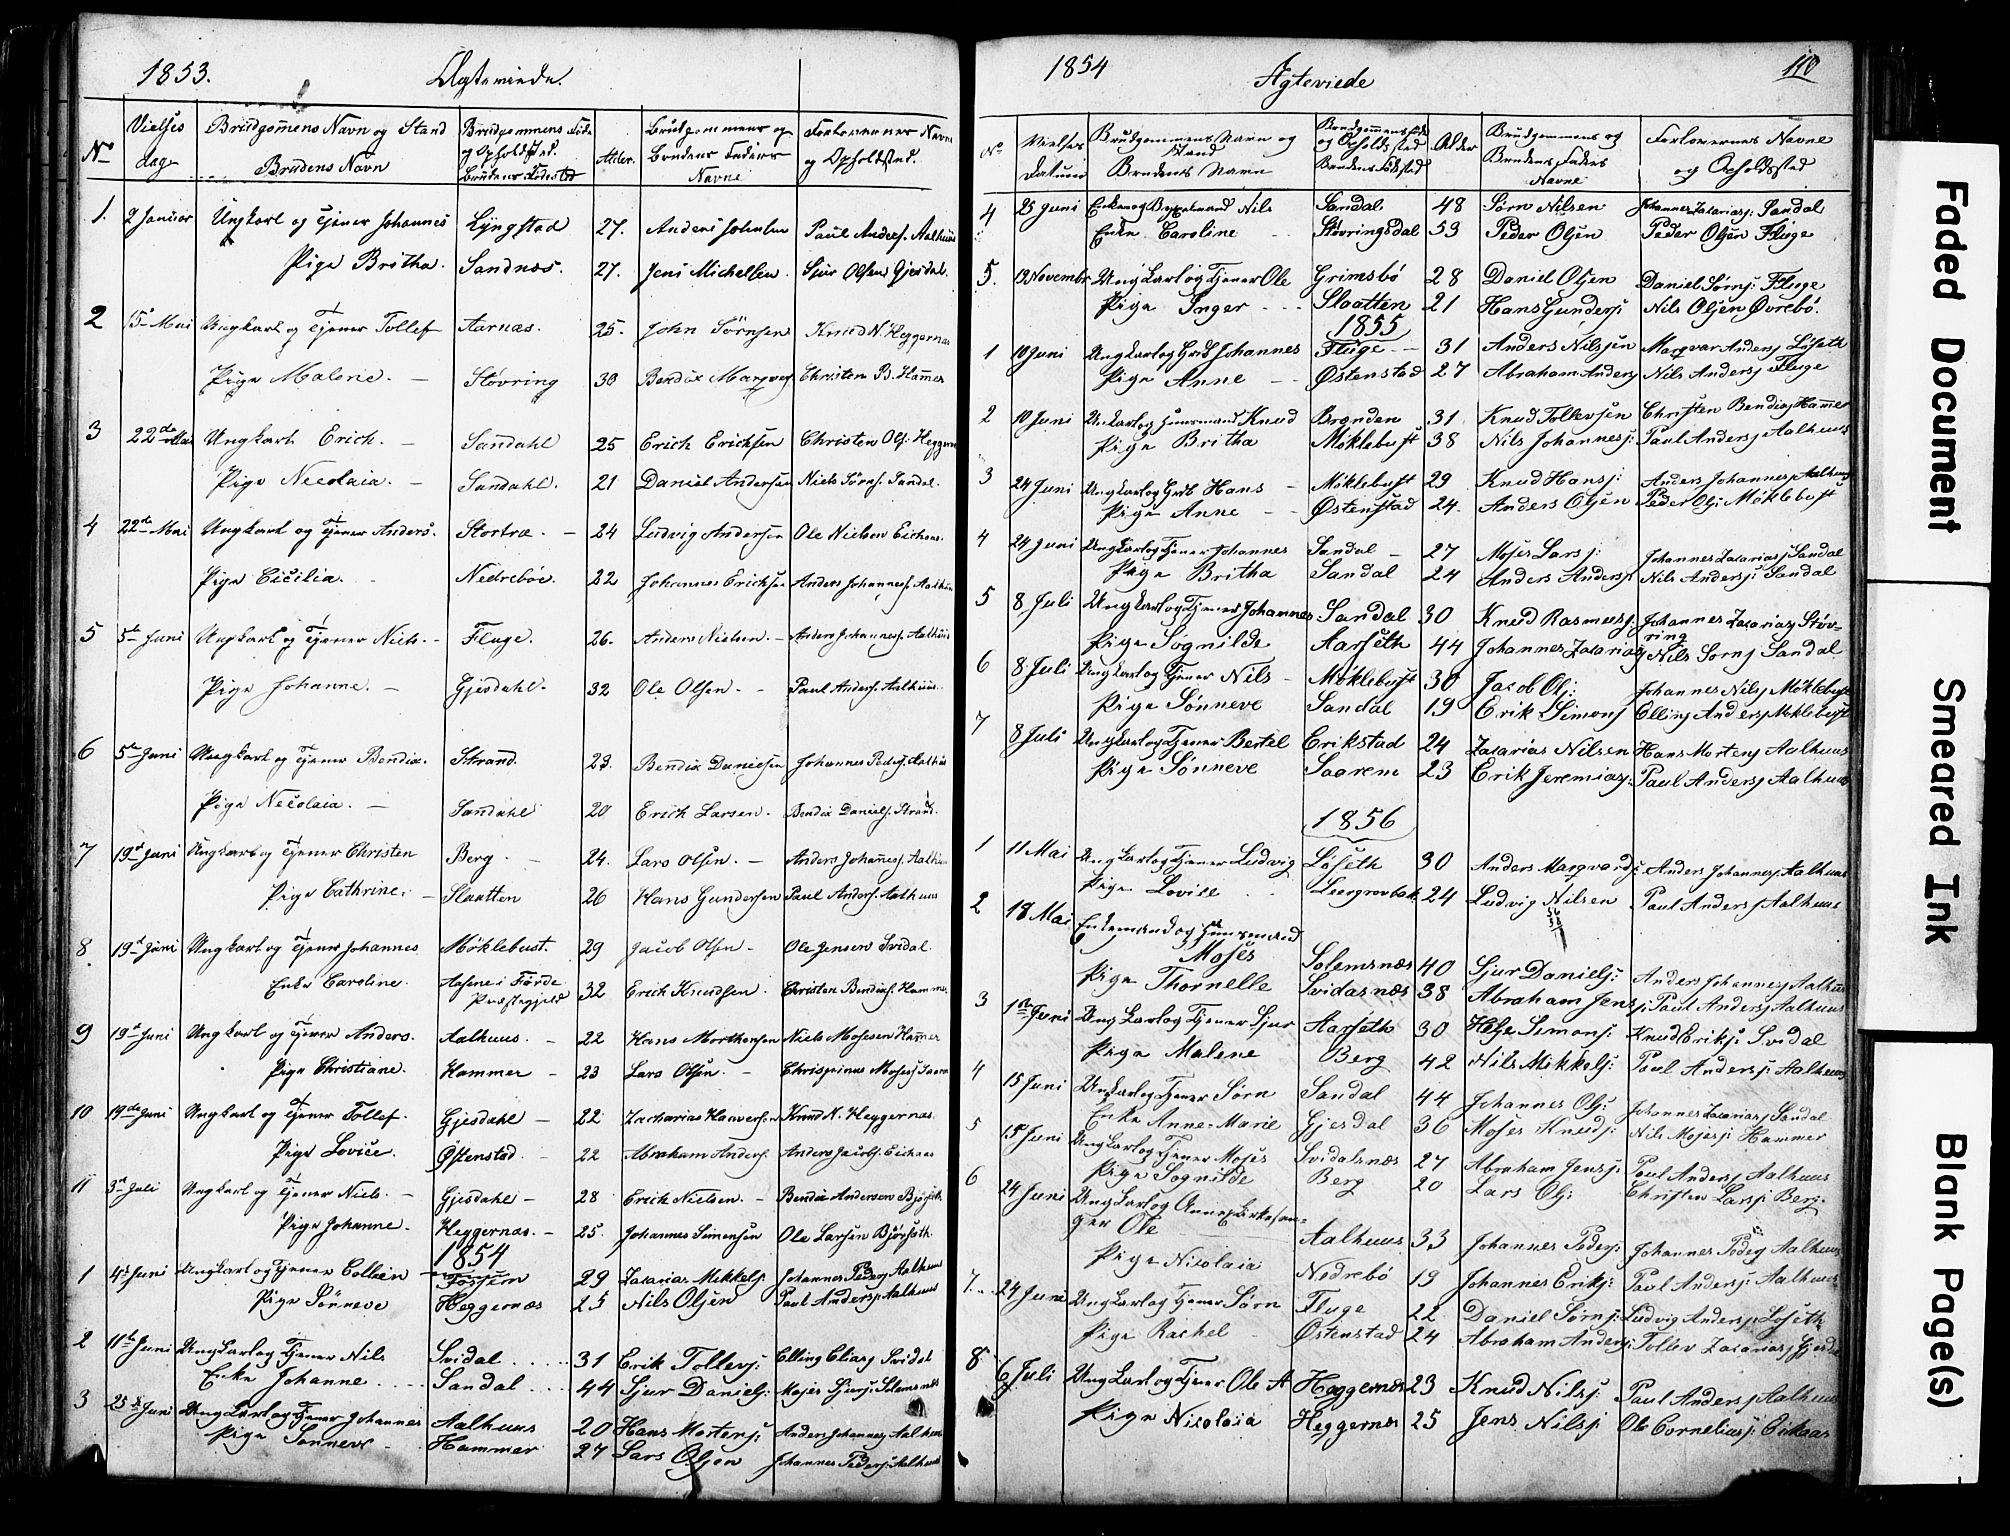 1853. Ægteviede.
No Vielses dag Brudgommens Navn og Stand Brudens Navn Brudgommens Føde og Opholdsted. Brudens Fødested Alder. Brudgommens og Brudens Faders Navne Forlovernes Navne og Opholdsted.
1. 2 Januar Ungkarl og Tjener Johannes Lyngstad 27. Anders Johnsen Paul Anders. Aalhuus
Pige Britha. Sandnæs. 27. Jens Michelsen. Sjur Olsen Gjesdal.
2 15de Mai Ungkarl og Tjener Tollef Aarnæs. 25. John Sörnsen Knud N. Heggernæs
Pige Malene. Støvring 30 Bendix Marqvar Christen B. Hammer
3 22de Mai Ungkarl Erich. Sandahl 25 Erich Erichsen Christen Ols: Heggern
Pige Necolaia. Sandahl. 21 Daniel Andersen Niels Sörns. Sandal.
4 22de Mai Ungkarl og Tjener Anders. Stortræ. 24 Ludvig Andersen Ole Nielsen
Pige Cicilia. Nedrebøe. 22 Johannes Erichsen Anders Johannes. Aalhuus
5 5te Juni Ungkarl og Tjener Niels. Fluge. 26. Anders Nielsen. Anders Johannes. Aalhuus
Pige Johanne. Gjesdahl. 32 Ole Olsen. Paul Anders. Aalhuus.
6 5te Juni Ungkarl og Tjener Bendix. Strand. 23. Bendix Danielsen Johannes Peders. Aalhuus
Pige Necolaia. Sandahl 20 Erich Larsen. Bendix Daniels. Strand.
7 19de Juni Ungkarl og Tjener Christen Berg. 24. Lars Olsen. Anders Johannes. Aalhuus
Pige Cathrine. Slaatten 26 Hans Gundersen Paul Anders. Aalhuus
8 19de Juni Ungkarl og Tjener Johannes Møklebust. 29 Jacob Olsen. Ole Jensen Svidal.
Enke Caroline. Aasene i Förde Præstegjeld 32 Erich Knudsen. Christen Bendixs. Hammer.
9 19de Juni Ungkarl og Tjener Anders. Aalhuus. 22 Hans Morthensen Niels Mosesen Hammer
Pige Christiane. Hammer 23 Lars Olsen. Chrispinus Moses
10 19de Juni Ungkarl og Tjener Tollef. Gjesdahl 22 Zacharias Knud N. Heggernæs.
Pige Lovice. Østenstad. 22 Abraham Anders. Anders Jacobs.
11 3de Juli Ungkarl og Tjener Niels. Gjesdahl 28 Erich Nielsen. Bendix Andersen Bjørseth
Pige Johanne. Heggernæs. 25. Johannes Simensen Ole Larsen Bjørseth.
1854
1 4de Juni Ungkarl og Tjener Fossum 29 Zacarias Mikkelsj: Johannes Pedersj Aalhuus
Pige Sønneve Heggernæs 25 Nils Olsen Paul Andersj. Aalhuus
2 11te Juni Ungkarl og Tjener Nils Svidal 31 Erik Tollevsj: Elling Eliasj Svidal
Enke Johanne Sandal 44 Sjur Danielsj: Moses Sjursj: Solemsnæs
3 25de Juni Ungkarl og Tjener Johannes Aalhuus 20 Hans Mortensj: Anders Johannesj Aalhuus
Pige Sønneve Hammer 27 Lars Olsen Johannes Pedersj: Aalhuus
1854 Ægteviede 110
No Vielses Datum Brudgommens Navn og Stand Brudens Navn Brudgommens Føde og Opholdsted Brudens Fødested Alder Brudgommens og Brudens Faders Navne Forlovernes Navne og Opholdsted
4 25 Juni Enkemand Nils Sandal 48 Sørn Nilsen Johannes Zakariasj: Sandal
Enke Caroline Støvringsdal 53 Peder Olsen Peder Olsen Fluge
5. 13 Novembr Ungkarl og Tjener Ole Grimsbø 28 Daniel Olsen Daniel Sørnsj: Fluge
Pige Inger Slaatten 21 Hans Gundersj Nils Olsen Øvrebø.
1855
1 10 Juni Ungkarl og Grdb Johannes Fluge 31 Anders Nilssen Marqvar Andersj Løseth
Pige Anne Østenstad 27 Abraham Andersj Nils Andersj Fluge
2 10 Juni Ungkarl og Huusmand Knud Brønden 31 Knud Tollevsen Christen Bendixsj Hammer
Pige Britha Møklebust 38 Nils Johannesj: Paul Andersj Aalhuus
3 24 Juni Ungkarl og Grdb Hans Møklebust 29 Knud Hansj: Anders Johannesj Aalhuus
Pige Anne Østenstad 24. Anders Olsen Peder Olsj: Møklebust
4 24 Juni Ungkarl og Tjener Johannes Sandal 27 Moses Larsj: Johannes Zakariasj Sandal
Pige Britha Sandal 24 Anders Andersj Nils Andersj: Sandal
5 8 Juli Ungkarl og Tjener Johannes Sandal 30 Knud Rasmusj: Johannes Zacariasj Støvring
Pige Søgnilde Aarseth 44 Johannes Zacariasj Nils Sørnsj Sandal
6 8 Juli Ungkarl og Tjener Nils Møklebust 30 Jacob Olsj: Johannes Nilsj Møklebust
Pige Sønneve Sandal 19 Erik Simonsj Elling Andersj Møklebust
7 8 Juli Ungkarl og Tjener Bertel Erikstad 24 Zacarias Nilsen Hans Mortensj Aalhuus
Pige Sønneve Saarem 23 Erik Jeremiasj: Paul Andersj Aalhuus
1856
1 11 Mai Ungkarl og Tjener Ludvig Løseth 30 Anders Marqvardsj: Anders Johannesj Aalhuus
Pige Lovise Leergrovbak 24 Ludvig Nilsen Paul Andersj Aalhuus
2 18 Mai Enkemand og Huusmand Moses Solemsnæs 40 Sjur Danielsj: Anders Johannesj Aalhuus
Pige Thornelle Svidalsnæs 38 Abraham Jensj: Paul Andersj Aalhuus
3 1ste Juni Ungkarl og Tjener Sjur Aarseth 30 Helge Simonsj: Knud Eriksj Svidal
Pige Malene Berg 42 Nils Mikkelsj: Paul Andersj: Aalhuus
4 15 Juni Ungkarl og Tjener Sørn Sandal 44 Johannes Olsj: Johannes Zacariasj Sandal
Enke Anne-Marie Gjesdal 36 Moses Knudsj: Nils Mosesj Hammer
5 15 Juni Ungkarl og Tjener Moses Svidalsnæs 27 Abraham Jensj: Paul Andersj Aalhuus
Pige Sognilde Berg 20 Lars Olsj: Christen Larsj Berg.
6 24 Juni Ungkarl og Kirkesanger Ole Aalhuus 33 Johannes Pedersj: Johannes Pedersj Aalhuus
Pige Nicolaia Nedrebø 19 Johannes Eriksj: Paul Andersj: Aalhuus
7. 24 Juni Ungkarl og Tjener Sørn Fluge 22 Daniel Sørnsj: Ludvig Andersj Løseth
Pige Rachel Østenstad 24 Abraham Andersj: Tollev Zacariasj Gjesdal
8 6 Juli Ungkarl og Tjener Ole A Heggernæs 23 Knud Nilsj: Paul Andersj Aalhuus
Pige Nicolaia Heggernæs 25 Jens Nilsj Ole Corneliasj:
Faded Document
Smeared Ink
Blank Page(s)